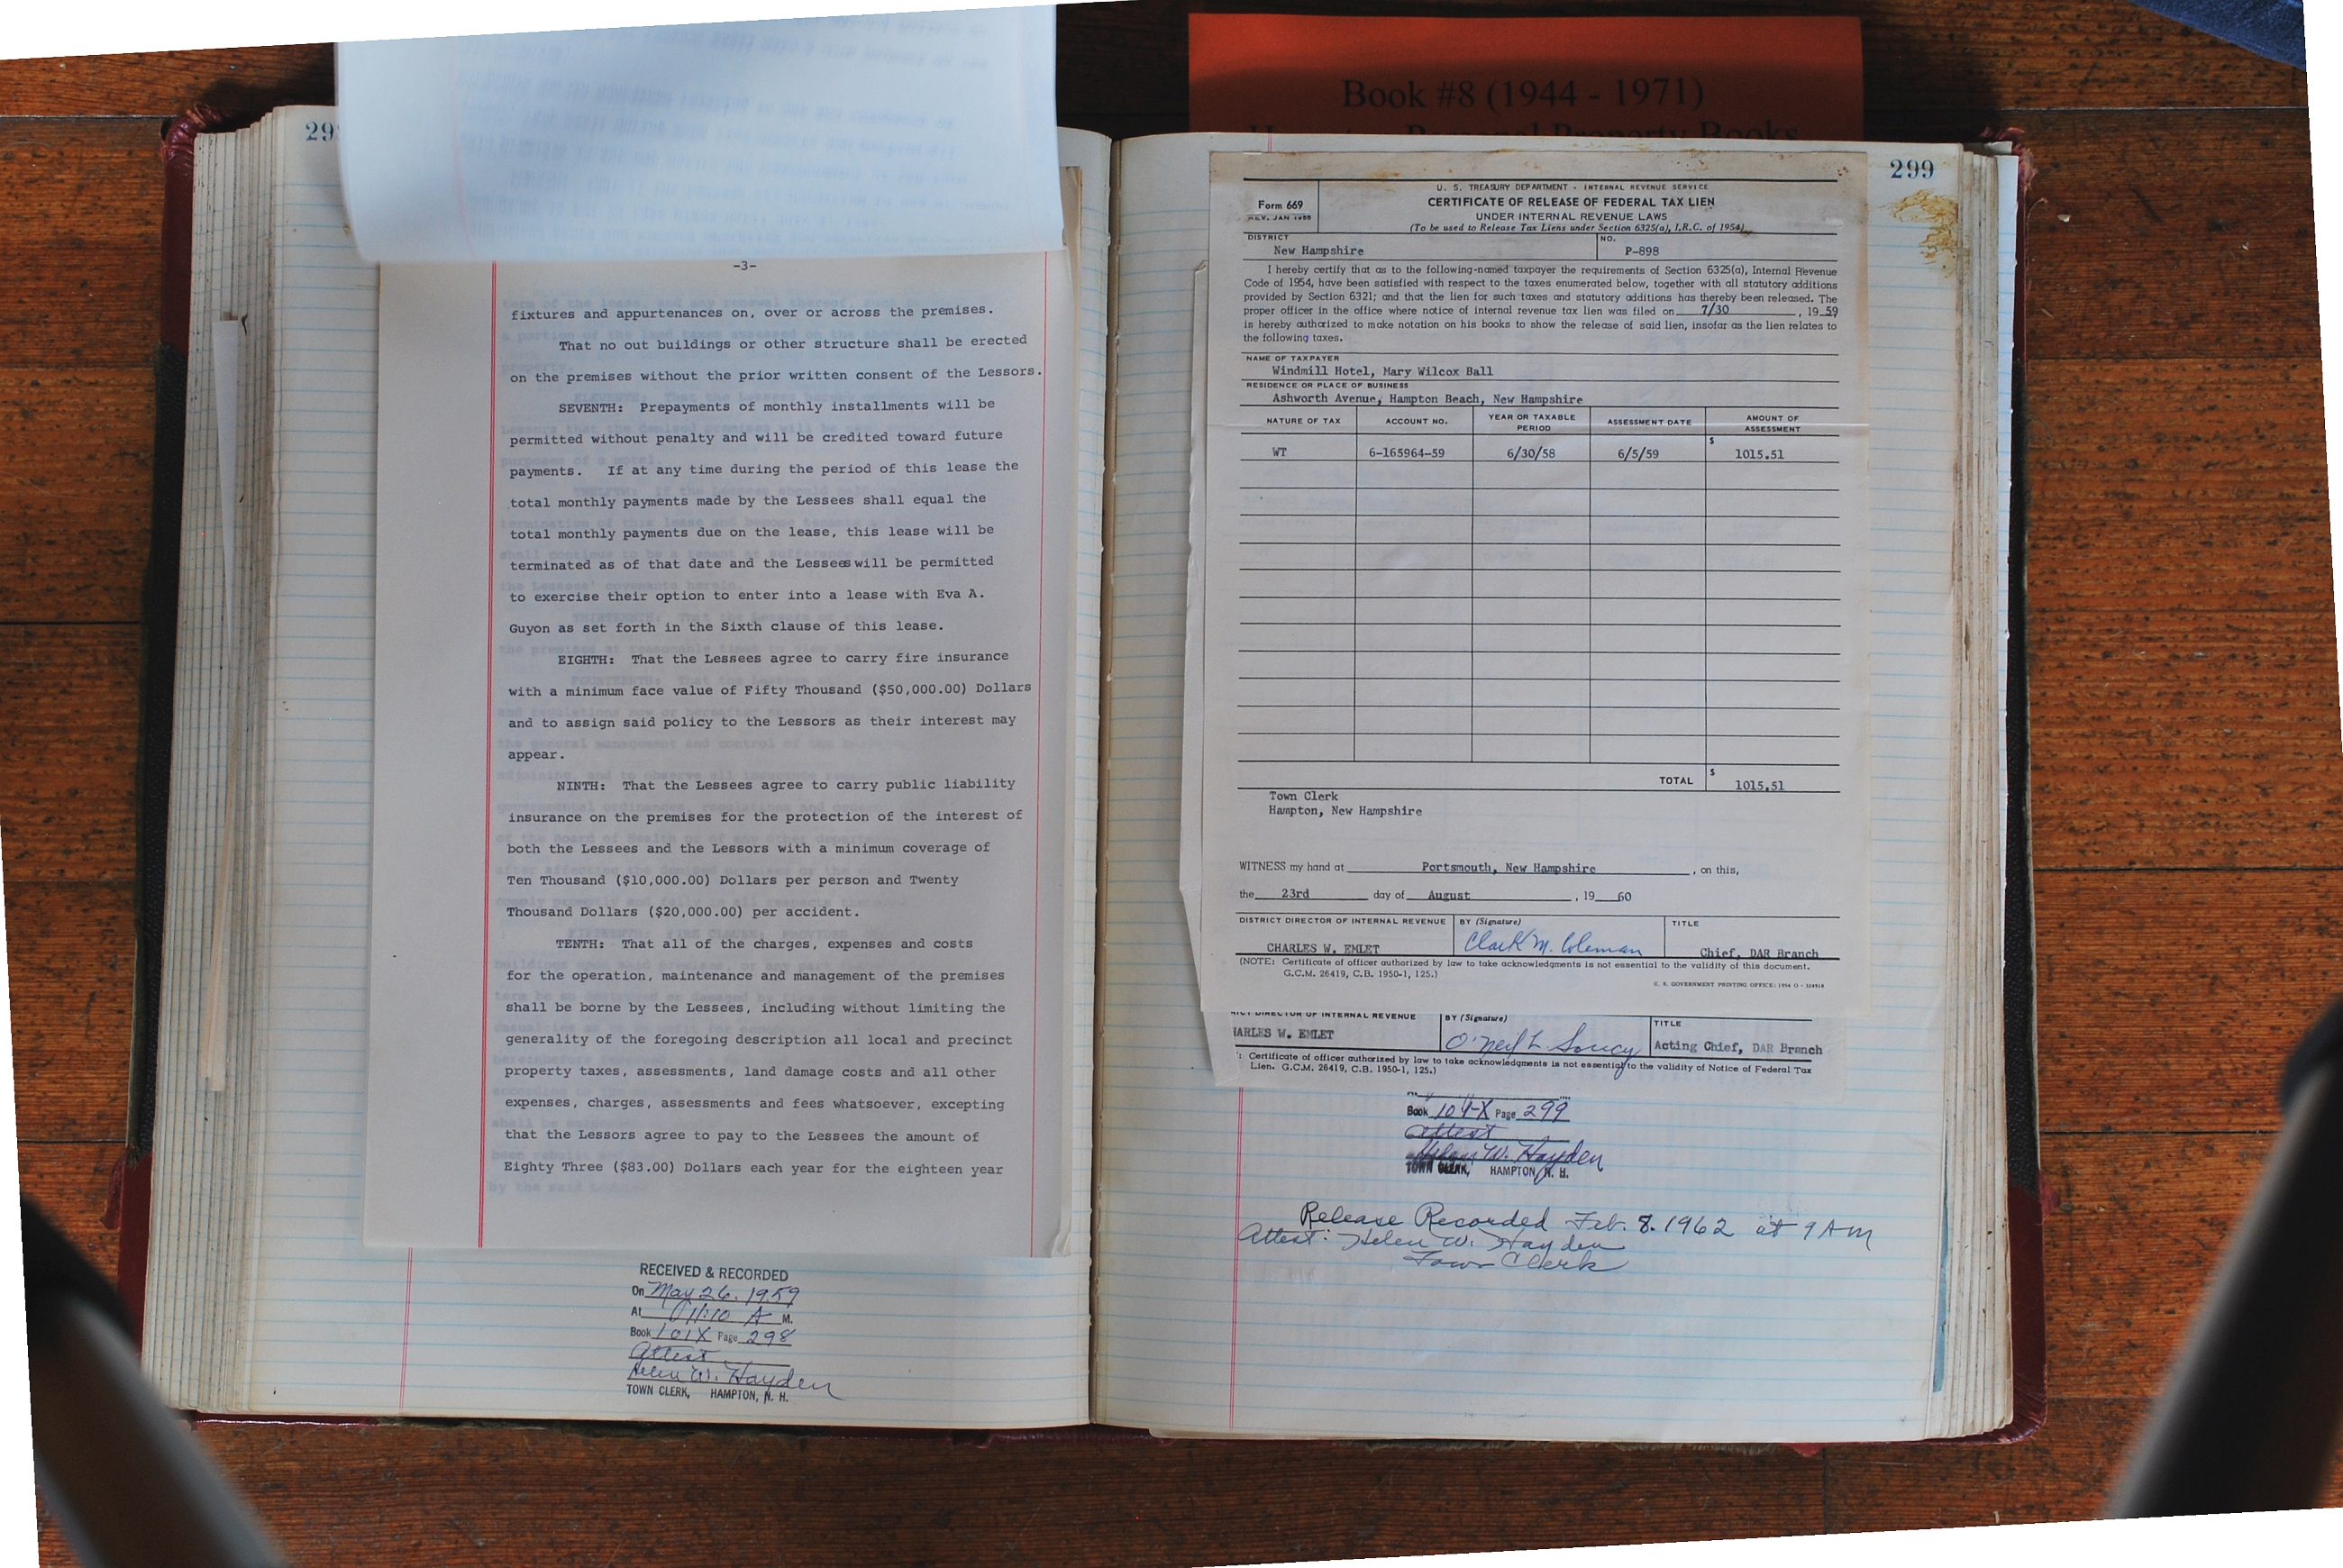 Book #8 (1944 - 1971)
Personal Property Books
29
-3-
fixtures and appurtenances on, over or across the premises.
That no out buildings or other structure shall be erected
on the premises without the prior written consent of the Lessors.
SEVENTH: Prepayments of monthly installments will be
permitted without penalty and will be credited toward future
payments. If at any time during the period of this lease the
total monthly payments made by the Lessees shall equal the
total monthly payments due on the lease, this lease will be
terminated as of that date and the Lessees will be permitted
to exercise their option to enter into a lease with Eva A.
Guyon as set forth in the Sixth clause of this lease.
EIGHTH: That the Lessees agree to carry fire insurance
with a minimum face value of Fifty Thousand ($50,000.00) Dollars
and to assign said policy to the Lessors as their interest may
appear.
NINTH: That the Lessees agree to carry public liability
insurance on the premises for the protection of the interest of
both the Lessees and the Lessors with a minimum coverage of
Ten Thousand ($10,000.00) Dollars per person and Twenty
Thousand Dollars ($20,000.00) per accident.
TENTH: That all of the charges, expenses and costs
for the operation, maintenance and management of the premises
shall be borne by the Lessees, including without limiting the
generality of the foregoing description all local and precinct
property taxes, assessments, land damage costs and all other
expenses, charges, assessments and fees whatsoever, excepting
that the Lessors agree to pay to the Lessees the amount of
Eighty Three ($83.00) Dollars each year for the eighteen year
RECEIVED & RECORDED
On May 26. 1959
At 11:10 A M.
Book 101X Page 298
Attest
Helen W. Hayden
TOWN CLERK, HAMPTON, N. H.
299
U. S. TREASURY DEPARTMENT - INTERNAL REVENUE SERVICE
Form 669
REV. JAN 1955
CERTIFICATE OF RELEASE OF FEDERAL TAX LIEN
UNDER INTERNAL REVENUE LAWS
(To be used to Release Tax Liens under Section 6325(a), I.R.C. of 1954)
DISTRICT
New Hampshire
NO.
P-898
I hereby certify that as to the following-named taxpayer the requirements of Section 6325(a), Internal Revenue
Code of 1954, have been satisfied with respect to the taxes enumerated below, together with all statutory additions
provided by Section 6321; and that the lien for such taxes and statutory additions has thereby been released. The
proper officer in the office where notice of internal revenue tax lien was filed on 7/30, 19 59
is hereby authorized to make notation on his books to show the release of said lien, insofar as the lien relates to
the following taxes.
NAME OF TAXPAYER
Windmill Hotel, Mary Wilcox Ball
RESIDENCE OR PLACE OF BUSINESS
Ashworth Avenue, Hampton Beach, New Hampshire
NATURE OF TAX ACCOUNT NO. YEAR OR TAXABLE PERIOD ASSESSMENT DATE AMOUNT OF ASSESSMENT
WT 6-165964-59 6/30/58 6/5/59 $ 1015.51
TOTAL $ 1015.51
Town Clerk
Hampton, New Hampshire
WITNESS my hand at Portsmouth, New Hampshire, on this,
the 23rd day of August, 19 60
DISTRICT DIRECTOR OF INTERNAL REVENUE BY (Signature) TITLE
CHARLES W. EMLET Clark M. Coleman Chief, DAR Branch
(NOTE: Certificate of officer authorized by law to take acknowledgments is not essential to the validity of this document.
G.C.M. 26419, C.B. 1950-1, 125.)
U. S. GOVERNMENT PRINTING OFFICE: 1954 O - 324918
DIRECTOR OF INTERNAL REVENUE BY (Signature) TITLE
HARLES W. EMLET O'Neil L Soucy Acting Chief, DAR Branch
: Certificate of officer authorized by law to take acknowledgments is not essential to the validity of Notice of Federal Tax
Lien. G.C.M. 26419, C.B. 1950-1, 125.)
Book 101-X Page 299
Attest
Helen W. Hayden
TOWN CLERK, HAMPTON, N. H.
Release Recorded Feb. 8. 1962 at 9 AM
Attest: Helen W. Hayden
Town Clerk